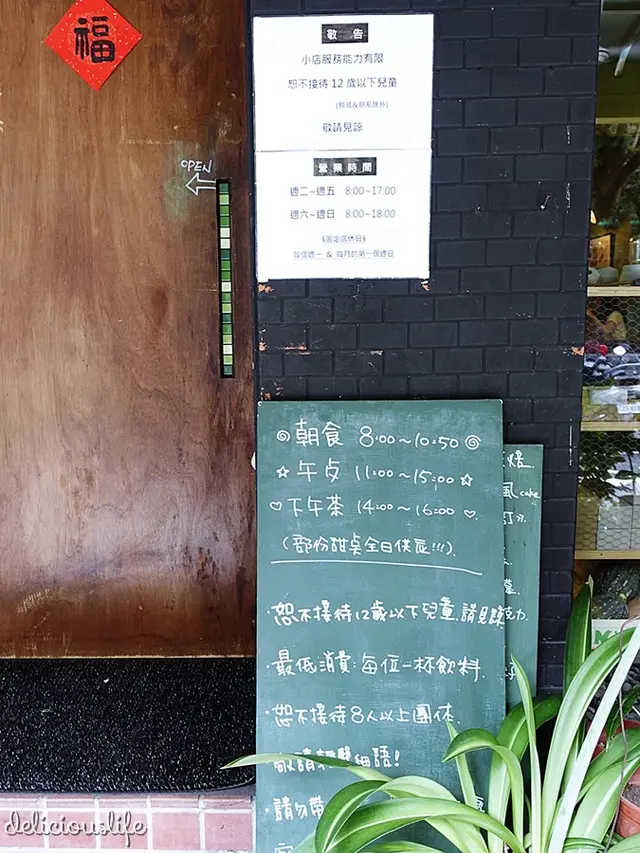 福
OPEN
敬告
小店服務能力有限
恕不接待 12 歲以下兒童
(親戚&朋友除外)
敬請見諒
營業時間
週二~週五 8:00~17:00
週六~週日 8:00~18:00
§固定店休日§
每個週一 & 每月的第一個週日
朝食 8:00~10:50
午食 11:00~15:00
下午茶 14:00~16:00
(部份甜點全日供應!!!)
·恕不接待12歲以下兒童.請見諒
·最低消費:每位一杯飲料.
·恕不接待8人以上團体.
敬請輕聲細語!
·請勿帶
cake
deliciouslife